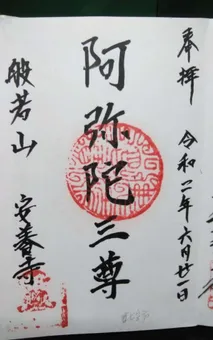 奉拝 令和二年六月廿一日
阿弥陀三尊
般若山 安養寺